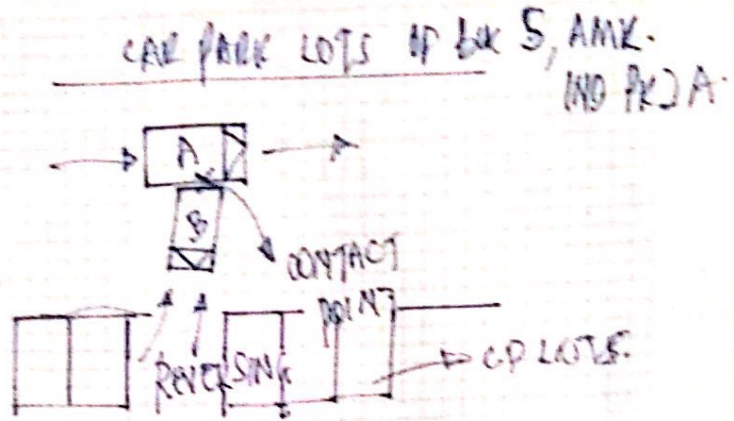 CAR PARK LOTS OF BLK 5, AMK.
IND PK 2A.
A
B
CONTACT
POINT
REVERSING
CP LOTS.